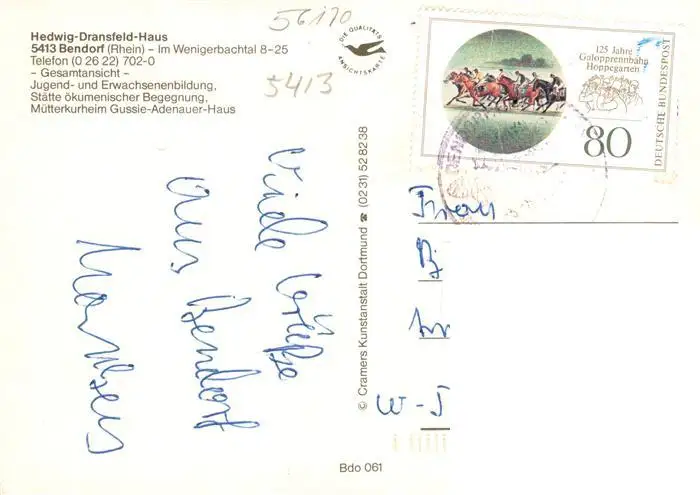 Hedwig-Dransfeld-Haus
5413 Bendorf (Rhein) – Im Wenigerbachtal 8–25
Telefon (0 26 22) 702-0
– Gesamtansicht –
Jugend- und Erwachsenenbildung,
Stätte ökumenischer Begegnung,
Mütterkurheim Gussie-Adenauer-Haus
56170
5413
DIE QUALITÄTS
ANSICHTSKARTE
125 Jahre
Galopprennbahn
Hoppegarten
80
DEUTSCHE BUNDESPOST
Viele Grüße
aus Bendorf
© Cramers Kunstanstalt Dortmund ☎ (02 31) 52 82 38
Frau
W-5
Bdo 061